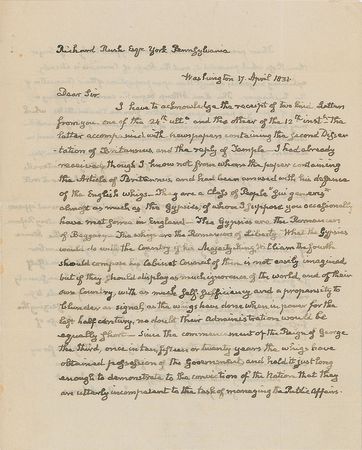 Richard Rush Esqr York Pennsylvania
Washington 17 April 1831.
Dear Sir.
I have to acknowledge the receipt of two kind Letters
from you, one of the 24th ulto and the other of the 12th instt. The
latter accompanied with newspapers containing the second Disser-
tation of Britannicus and the reply of Temple — I had already
received, though I know not from whom the paper containing
the Article of Britannicus, and had been amused with his defence
of the English whigs. They are a Class of People "sui generis"
almost as much as the Gypsies, of whom I suppose you occasionally
have met some in England — The Gypsies are the Romancers
of Beggary — The whigs are the Romancers of Liberty. What the Gypsies
would do with the Country if his Majesty King William the fourth
should compose his Cabinet Council of them, is not easily imagined
but if they should display as much ignorance of the world, and of their
own Country, with as much Self Sufficiency, and a propensity to
blunder as signal, as the whigs have done when in power for the
last half century, no doubt their Administration would be
equally short — Since the commencement of the Reign of George
the third, once in ten, fifteen or twenty years the whigs have
obtained possession of the Government, and held it just long
enough to demonstrate to the conviction of the Nation that they
are utterly incompetent to the task of managing the Public Affairs.